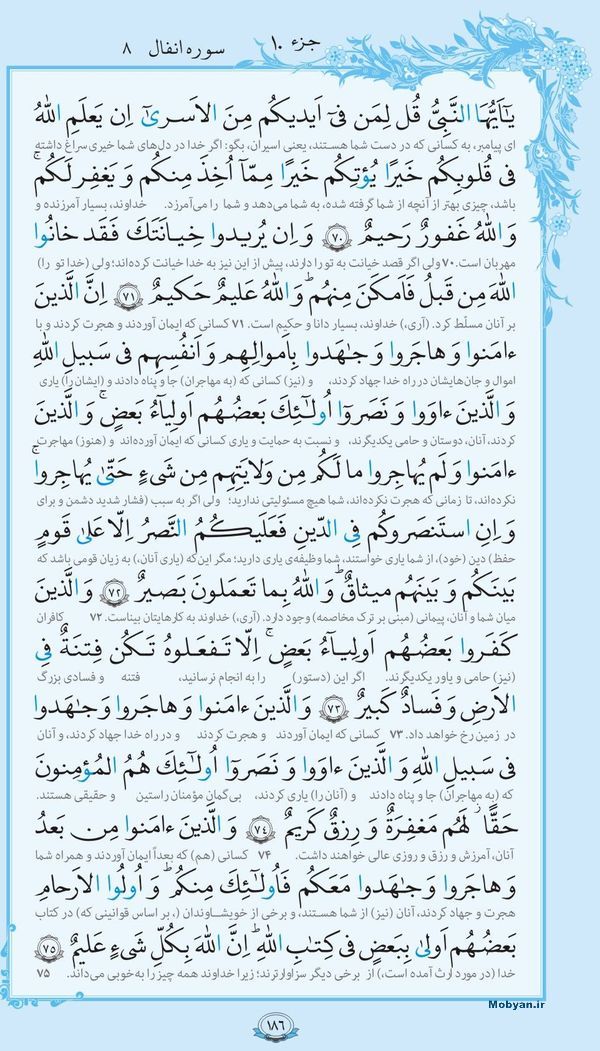 جزء ۱۰
سوره انفال ۸
يٰٓاَيُّهَا النَّبِيُّ قُل لِمَن فىٓ اَيديكُم مِنَ الاَسرىٰٓ اِن يَعلَمِ اللّٰهُ
ای پیامبر، به کسانی که در دست شما هستند، یعنی اسیران، بگو: اگر خدا در دل‌های شما خیری سراغ داشته
فى قُلوبِكُم خَيرًا يُؤتِكُم خَيرًا مِمّآ اُخِذَ مِنكُم وَ يَغفِر لَكُم ۗ
باشد، چیزی بهتر از آنچه از شما گرفته شده، به شما می‌دهد و شما را می‌آمرزد. خداوند، بسیار آمرزنده و
وَ اللّٰهُ غَفورٌ رَحيمٌ ﴿۷۰﴾ وَ اِن يُريدوا خيانَتَكَ فَقَد خانُوا
مهربان است. ۷۰ ولی اگر قصد خیانت به تو را دارند، پیش از این نیز به خدا خیانت کرده‌اند؛ ولی (خدا تو را)
اللّٰهَ مِن قَبلُ فَاَمكَنَ مِنهُم ۗ وَ اللّٰهُ عَليمٌ حَكيمٌ ﴿۷۱﴾ اِنَّ الَّذينَ
بر آنان مسلّط کرد. (آری،) خداوند، بسیار دانا و حکیم است. ۷۱ کسانی که ایمان آوردند و هجرت کردند و با
ءامَنوا وَ هاجَروا وَ جٰهَدوا بِاَموالِهِم وَ اَنفُسِهِم فى سَبيلِ اللّٰهِ
اموال و جان‌هایشان در راه خدا جهاد کردند، و (نیز) کسانی که (به مهاجران) جا و پناه دادند و (ایشان را) یاری
وَ الَّذينَ ءاوَوا وَ نَصَروٓا اُولٰٓئِكَ بَعضُهُم اَولِيآءُ بَعضٍ ۚ وَ الَّذينَ
کردند، آنان، دوستان و حامی یکدیگرند، و نسبت به حمایت و یاری کسانی که ایمان آورده‌اند و (هنوز) مهاجرت
ءامَنوا وَ لَم يُهاجِروا ما لَكُم مِن وَلايَتِهِم مِن شَىءٍ حَتّىٰ يُهاجِروا ۚ
نکرده‌اند، تا زمانی که هجرت نکرده‌اند، شما هیچ مسئولیتی ندارید؛ ولی اگر به سبب (فشار شدید دشمن و برای
وَ اِنِ استَنصَروكُم فِى الدّينِ فَعَلَيكُمُ النَّصرُ اِلّا عَلىٰ قَومٍ
حفظ) دین (خود)، از شما یاری خواستند، شما وظیفه‌ی یاری دارید؛ مگر این‌که (یاری آنان،) به زیان قومی باشد که
بَينَكُم وَ بَينَهُم ميثاقٌ ۗ وَ اللّٰهُ بِما تَعمَلونَ بَصيرٌ ﴿۷۲﴾ وَ الَّذينَ
میان شما و آنان، پیمانی (مبنی بر ترک مخاصمه) وجود دارد. (آری،) خداوند به کارهایتان بیناست. ۷۲ کافران
كَفَروا بَعضُهُم اَولِيآءُ بَعضٍ ۚ اِلّا تَفعَلوهُ تَكُن فِتنَةٌ فِى
(نیز) حامی و یاور یکدیگرند. اگر این (دستور) را به انجام نرسانید، فتنه و فسادی بزرگ
الاَرضِ وَ فَسادٌ كَبيرٌ ﴿۷۳﴾ وَ الَّذينَ ءامَنوا وَ هاجَروا وَ جٰهَدوا
در زمین رخ خواهد داد. ۷۳ کسانی که ایمان آوردند و هجرت کردند و در راه خدا جهاد کردند، و آنان
فى سَبيلِ اللّٰهِ وَ الَّذينَ ءاوَوا وَ نَصَروٓا اُولٰٓئِكَ هُمُ المُؤمِنونَ
که (به مهاجران) جا و پناه دادند و (آنان را) یاری کردند، بی‌گمان مؤمنان راستین و حقیقی هستند.
حَقًّا ۚ لَهُم مَغفِرَةٌ وَ رِزقٌ كَريمٌ ﴿۷۴﴾ وَ الَّذينَ ءامَنوا مِن بَعدُ
آنان، آمرزش و رزق و روزی عالی خواهند داشت. ۷۴ کسانی (هم) که بعداً ایمان آوردند و همراه شما
وَ هاجَروا وَ جٰهَدوا مَعَكُم فَاُولٰٓئِكَ مِنكُم ۚ وَ اُولُوا الاَرحامِ
هجرت و جهاد کردند، آنان (نیز) از شما هستند، و برخی از خویشاوندان (، بر اساس قوانینی که) در کتاب
بَعضُهُم اَولىٰ بِبَعضٍ فى كِتٰبِ اللّٰهِ ۗ اِنَّ اللّٰهَ بِكُلِّ شَىءٍ عَليمٌ ﴿۷۵﴾
خدا (در مورد ارث آمده است،) از برخی دیگر سزاوارترند؛ زیرا خداوند همه چیز را به‌خوبی می‌داند. ۷۵
۱۸۶
Mobyan.ir